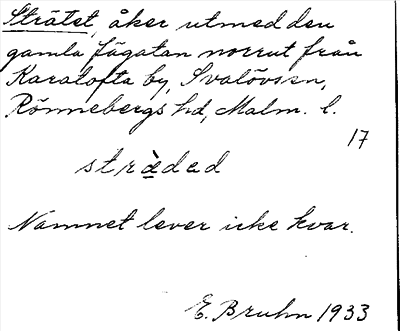 Strätet, åker utmed den
gamla fägatan norrut från
Karalofta by, Svalövs sn,
Rönnebergs hd, Malm. l.
17
strä̀dəd
Namnet lever icke kvar.
E. Bruhn 1933